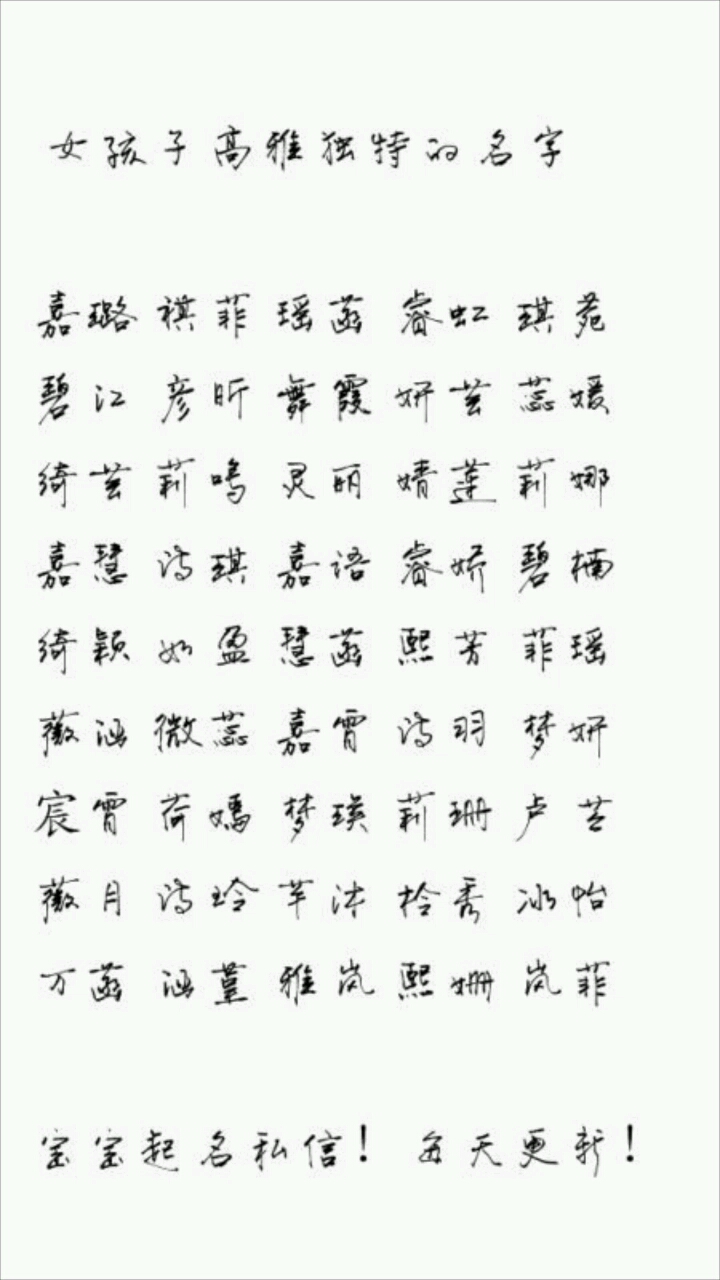 女孩子高雅独特的名字
嘉璐 祺菲 瑶菡 睿虹 琪苑
碧江 彦昕 舞霞 妍芸 蕊媛
绮芸 莉鸣 灵丽 婧莲 莉娜
嘉慧 诗琪 嘉语 睿娇 碧楠
绮颖 如盈 慧菡 熙芳 菲瑶
薇涵 微蕊 嘉霄 诗羽 梦妍
宸霄 荷嫣 梦瑛 莉珊 卢芸
薇月 诗玲 芊沐 柃秀 冰怡
万菡 涵堇 雅岚 熙姗 岚菲
宝宝起名私信! 每天更新!